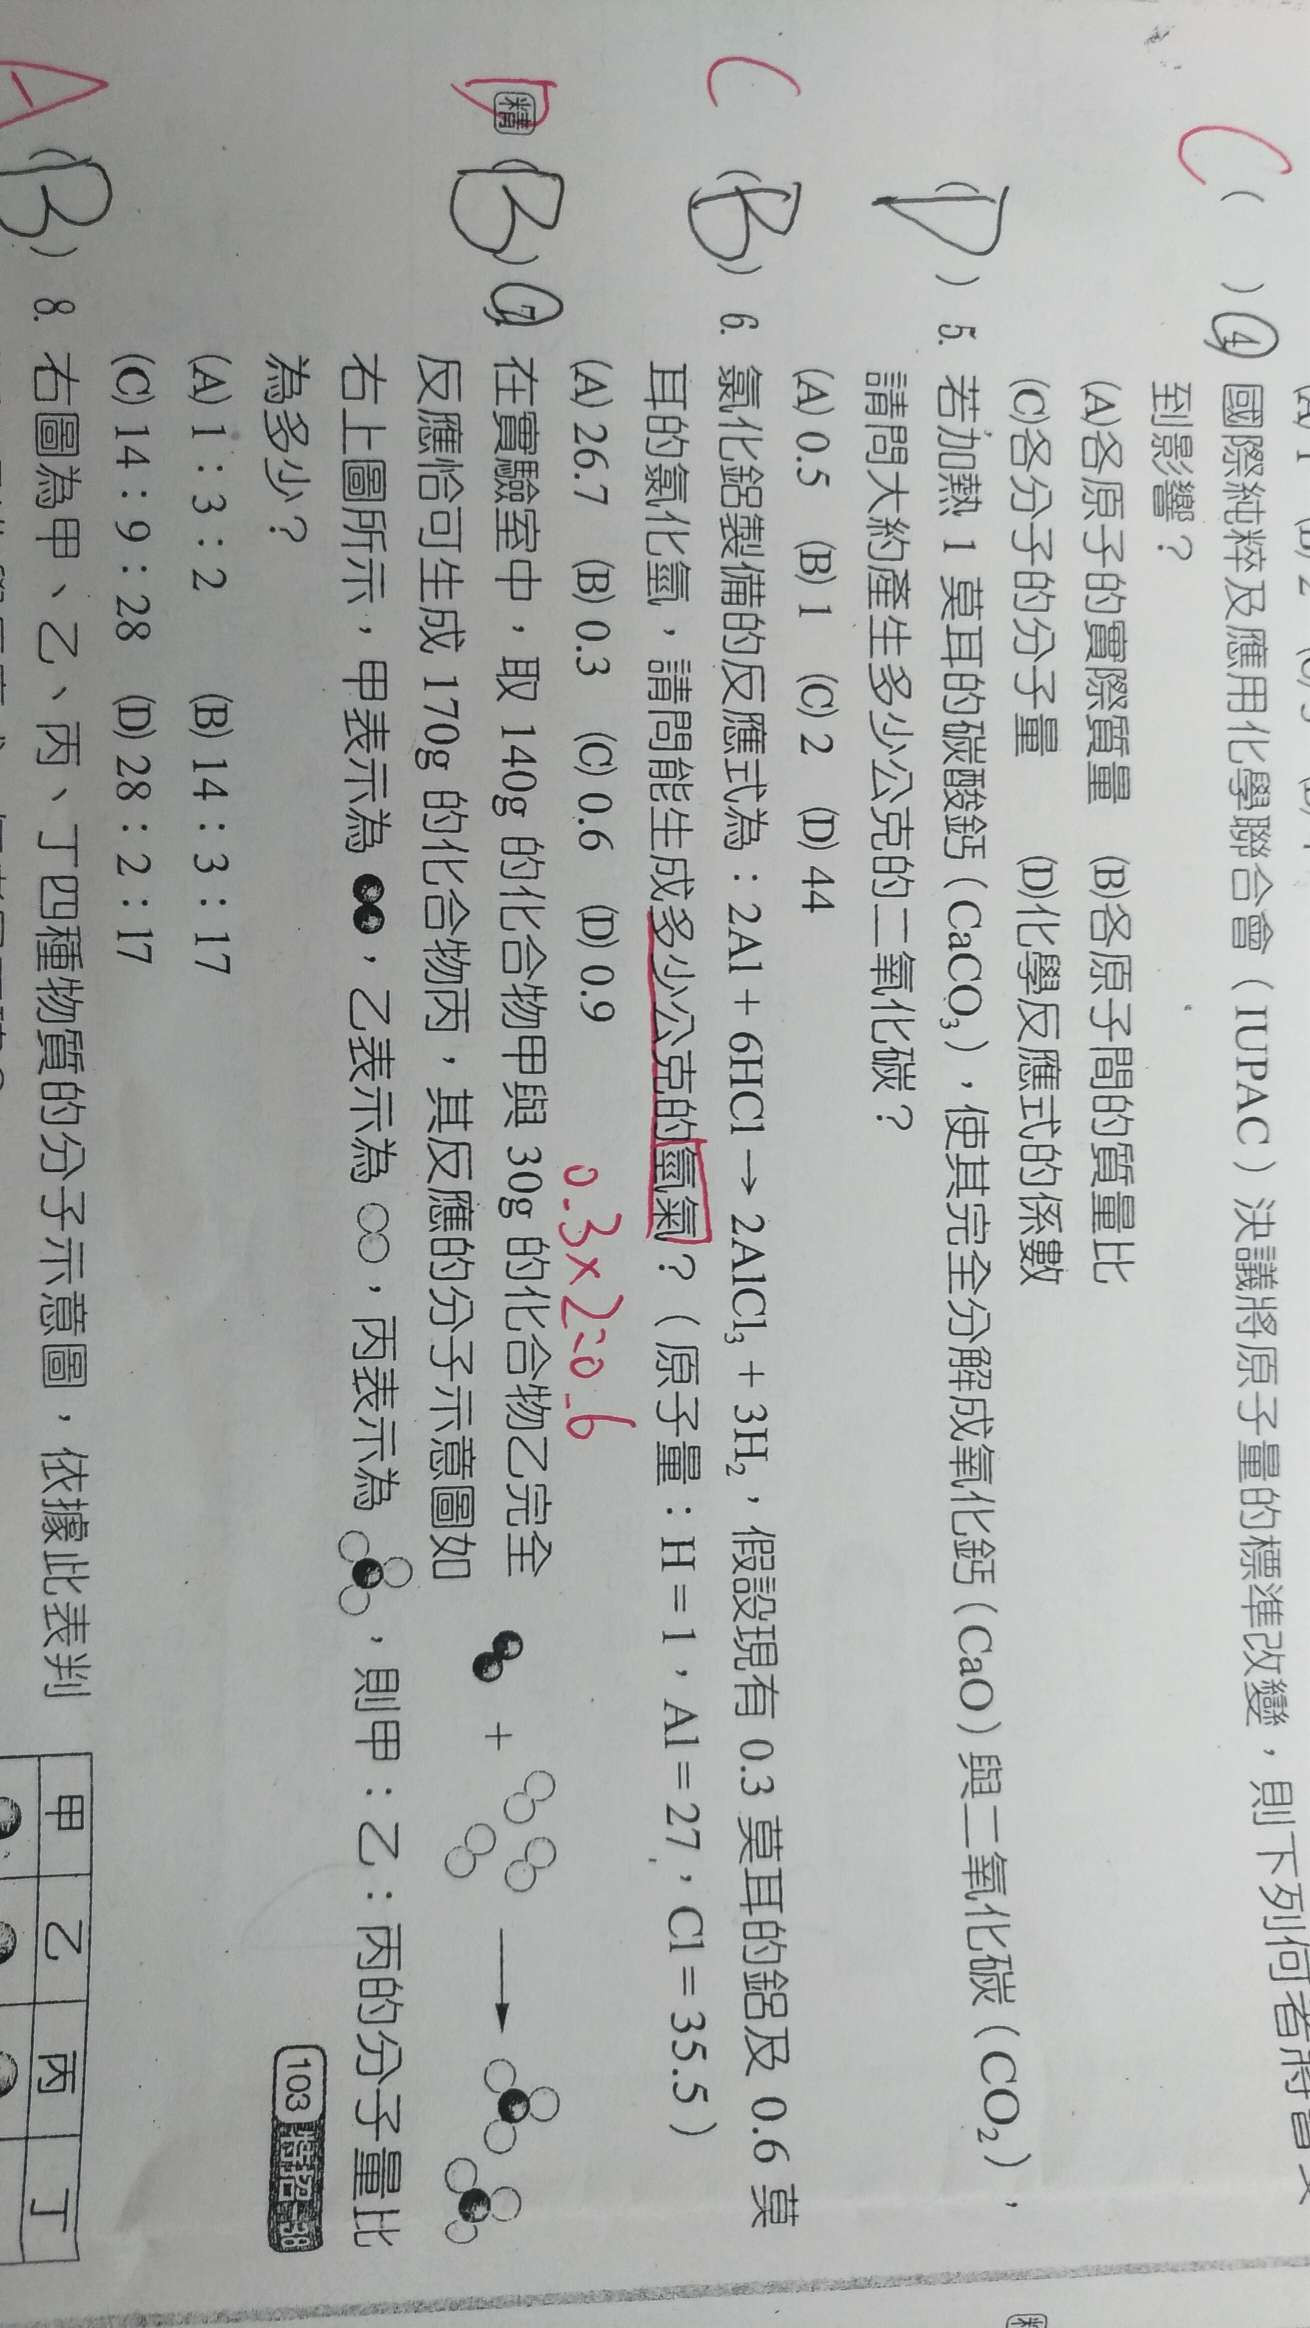 C ( ) 4. 國際純粹及應用化學聯合會（IUPAC）決議將原子量的標準改變，則下列何者將會受
到影響？
(A)各原子的實際質量 (B)各原子間的質量比
(C)各分子的分子量 (D)化學反應式的係數
(D) 5. 若加熱 1 莫耳的碳酸鈣（CaCO₃），使其完全分解成氧化鈣（CaO）與二氧化碳（CO₂），
請問大約產生多少公克的二氧化碳？
(A) 0.5 (B) 1 (C) 2 (D) 44
C (B) 6. 氯化鋁製備的反應式為：2Al + 6HCl → 2AlCl₃ + 3H₂，假設現有 0.3 莫耳的鋁及 0.6 莫
耳的氯化氫，請問能生成多少公克的氫氣？（原子量：H = 1，Al = 27，Cl = 35.5）
(A) 26.7 (B) 0.3 (C) 0.6 (D) 0.9
0.3×2=0.6
D 精 (B) 7. 在實驗室中，取 140g 的化合物甲與 30g 的化合物乙完全
反應恰可生成 170g 的化合物丙，其反應的分子示意圖如
右上圖所示，甲表示為 ，乙表示為 ，丙表示為 ，則甲：乙：丙的分子量比
為多少？
+ →
103 特招-38
(A) 1：3：2 (B) 14：3：17
(C) 14：9：28 (D) 28：2：17
A (B) 8. 右圖為甲、乙、丙、丁四種物質的分子示意圖，依據此表判
甲 乙 丙 丁